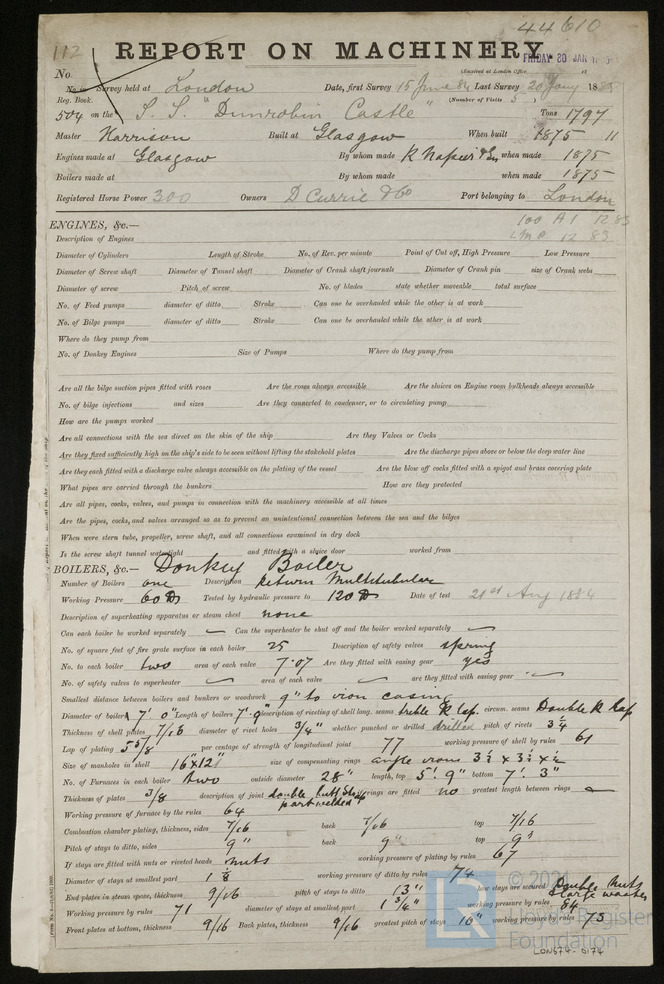 44610
112 REPORT ON MACHINERY.
FRIDAY 30 JAN
No.
(Received at London Office
No. in Survey held at London Date, first Survey 15 June 84 Last Survey 20 Jany 1885
Reg. Book. (Number of Visits 5)
504 on the S. S. "Dunrobin Castle" Tons 1797
Master Harrison Built at Glasgow When built 1875 11
Engines made at Glasgow By whom made R Napier & Sn when made 1875
Boilers made at By whom made when made 1875
Registered Horse Power 300 Owners D Currie & Co Port belonging to London
100 A1 12 83
LMC 12 83
ENGINES, &c.—
Description of Engines
Diameter of Cylinders Length of Stroke No. of Rev. per minute Point of Cut off, High Pressure Low Pressure
Diameter of Screw shaft Diameter of Tunnel shaft Diameter of Crank shaft journals Diameter of Crank pin size of Crank webs
Diameter of screw Pitch of screw No. of blades state whether moveable total surface
No. of Feed pumps diameter of ditto Stroke Can one be overhauled while the other is at work
No. of Bilge pumps diameter of ditto Stroke Can one be overhauled while the other is at work
Where do they pump from
No. of Donkey Engines Size of Pumps Where do they pump from
Are all the bilge suction pipes fitted with roses Are the roses always accessible Are the sluices on Engine room bulkheads always accessible
No. of bilge injections and sizes Are they connected to condenser, or to circulating pump
How are the pumps worked
Are all connections with the sea direct on the skin of the ship Are they Valves or Cocks
Are they fixed sufficiently high on the ship's side to be seen without lifting the stokehold plates Are the discharge pipes above or below the deep water line
Are they each fitted with a discharge valve always accessible on the plating of the vessel Are the blow off cocks fitted with a spigot and brass covering plate
What pipes are carried through the bunkers How are they protected
Are all pipes, cocks, valves, and pumps in connection with the machinery accessible at all times
Are the pipes, cocks, and valves arranged so as to prevent an unintentional connection between the sea and the bilges
When were stern tube, propeller, screw shaft, and all connections examined in dry dock
Is the screw shaft tunnel watertight and fitted with a sluice door worked from
BOILERS, &c.— Donkey Boiler
Number of Boilers one Description Return Multitubular
Working Pressure 60 lbs Tested by hydraulic pressure to 120 lbs Date of test 21st Aug 1884
Description of superheating apparatus or steam chest none
Can each boiler be worked separately Can the superheater be shut off and the boiler worked separately
No. of square feet of fire grate surface in each boiler 25 Description of safety valves spring
No. to each boiler two area of each valve 7.07 Are they fitted with easing gear yes
No. of safety valves to superheater area of each valve are they fitted with easing gear
Smallest distance between boilers and bunkers or woodwork 9" to iron casing
Diameter of boilers 7' 0" Length of boilers 7'.9" description of riveting of shell long. seams treble R lap circum. seams Double R lap
Thickness of shell plates 7/16 diameter of rivet holes 3/4" whether punched or drilled drilled pitch of rivets 3 1/4
Lap of plating 5 5/8 per centage of strength of longitudinal joint 77 working pressure of shell by rules 61
Size of manholes in shell 16"x12" size of compensating rings angle irons 3 1/2 x 3 1/2 x 1/2
No. of Furnaces in each Boiler two outside diameter 28" length, top 5'. 9" bottom 7'. 3"
Thickness of plates 3/8 description of joint double butt Strap part welded if rings are fitted no greatest length between rings
Working pressure of furnace by the rules 64
Combustion chamber plating, thickness, sides 7/16 back 7/16 top 7/16
Pitch of stays to ditto, sides 9" back 9" top 9"
If stays are fitted with nuts or riveted heads nuts working pressure of plating by rules 67
Diameter of stays at smallest part 1 1/8 working pressure of ditto by rules 74
End plates in steam space, thickness 9/16 pitch of stays to ditto 13" how stays are secured Double Nuts & large washers
Working pressure by rules 71 diameter of stays at smallest part 1 3/4" working pressure by rules 84
Front plates at bottom, thickness 9/16 Back plates, thickness 9/16 greatest pitch of stays 10" working pressure by rules 75
© 2021
Lloyd's Register
Foundation
LON674-0174